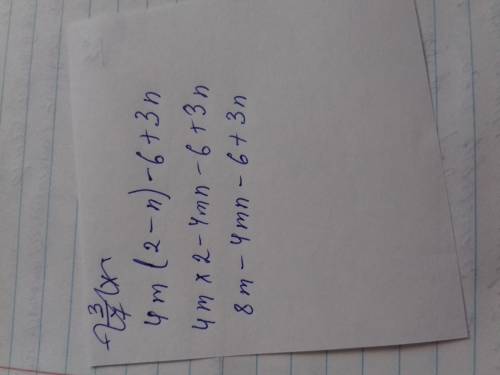 4m(2-n)-6+3n
4m×2-4mn-6+3n
8m-4mn-6+3n